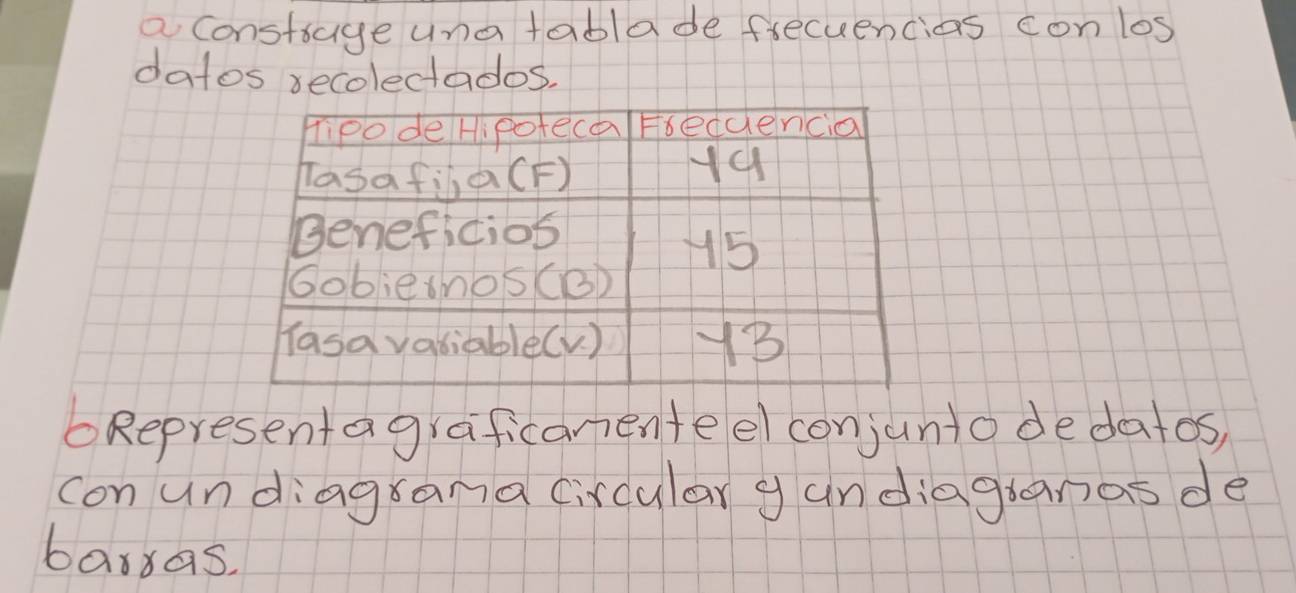 a construye una tabla de frecuencias con los
datos recolectados.
Tipo de Hipoteca Frecuencia
Tasa fija (F) 14
Beneficios
Gobiernos (B) 15
Tasa variable (v) 13
b Representa graficamente el conjunto de datos,
con un diagrama circular y un diagramas de
barras.